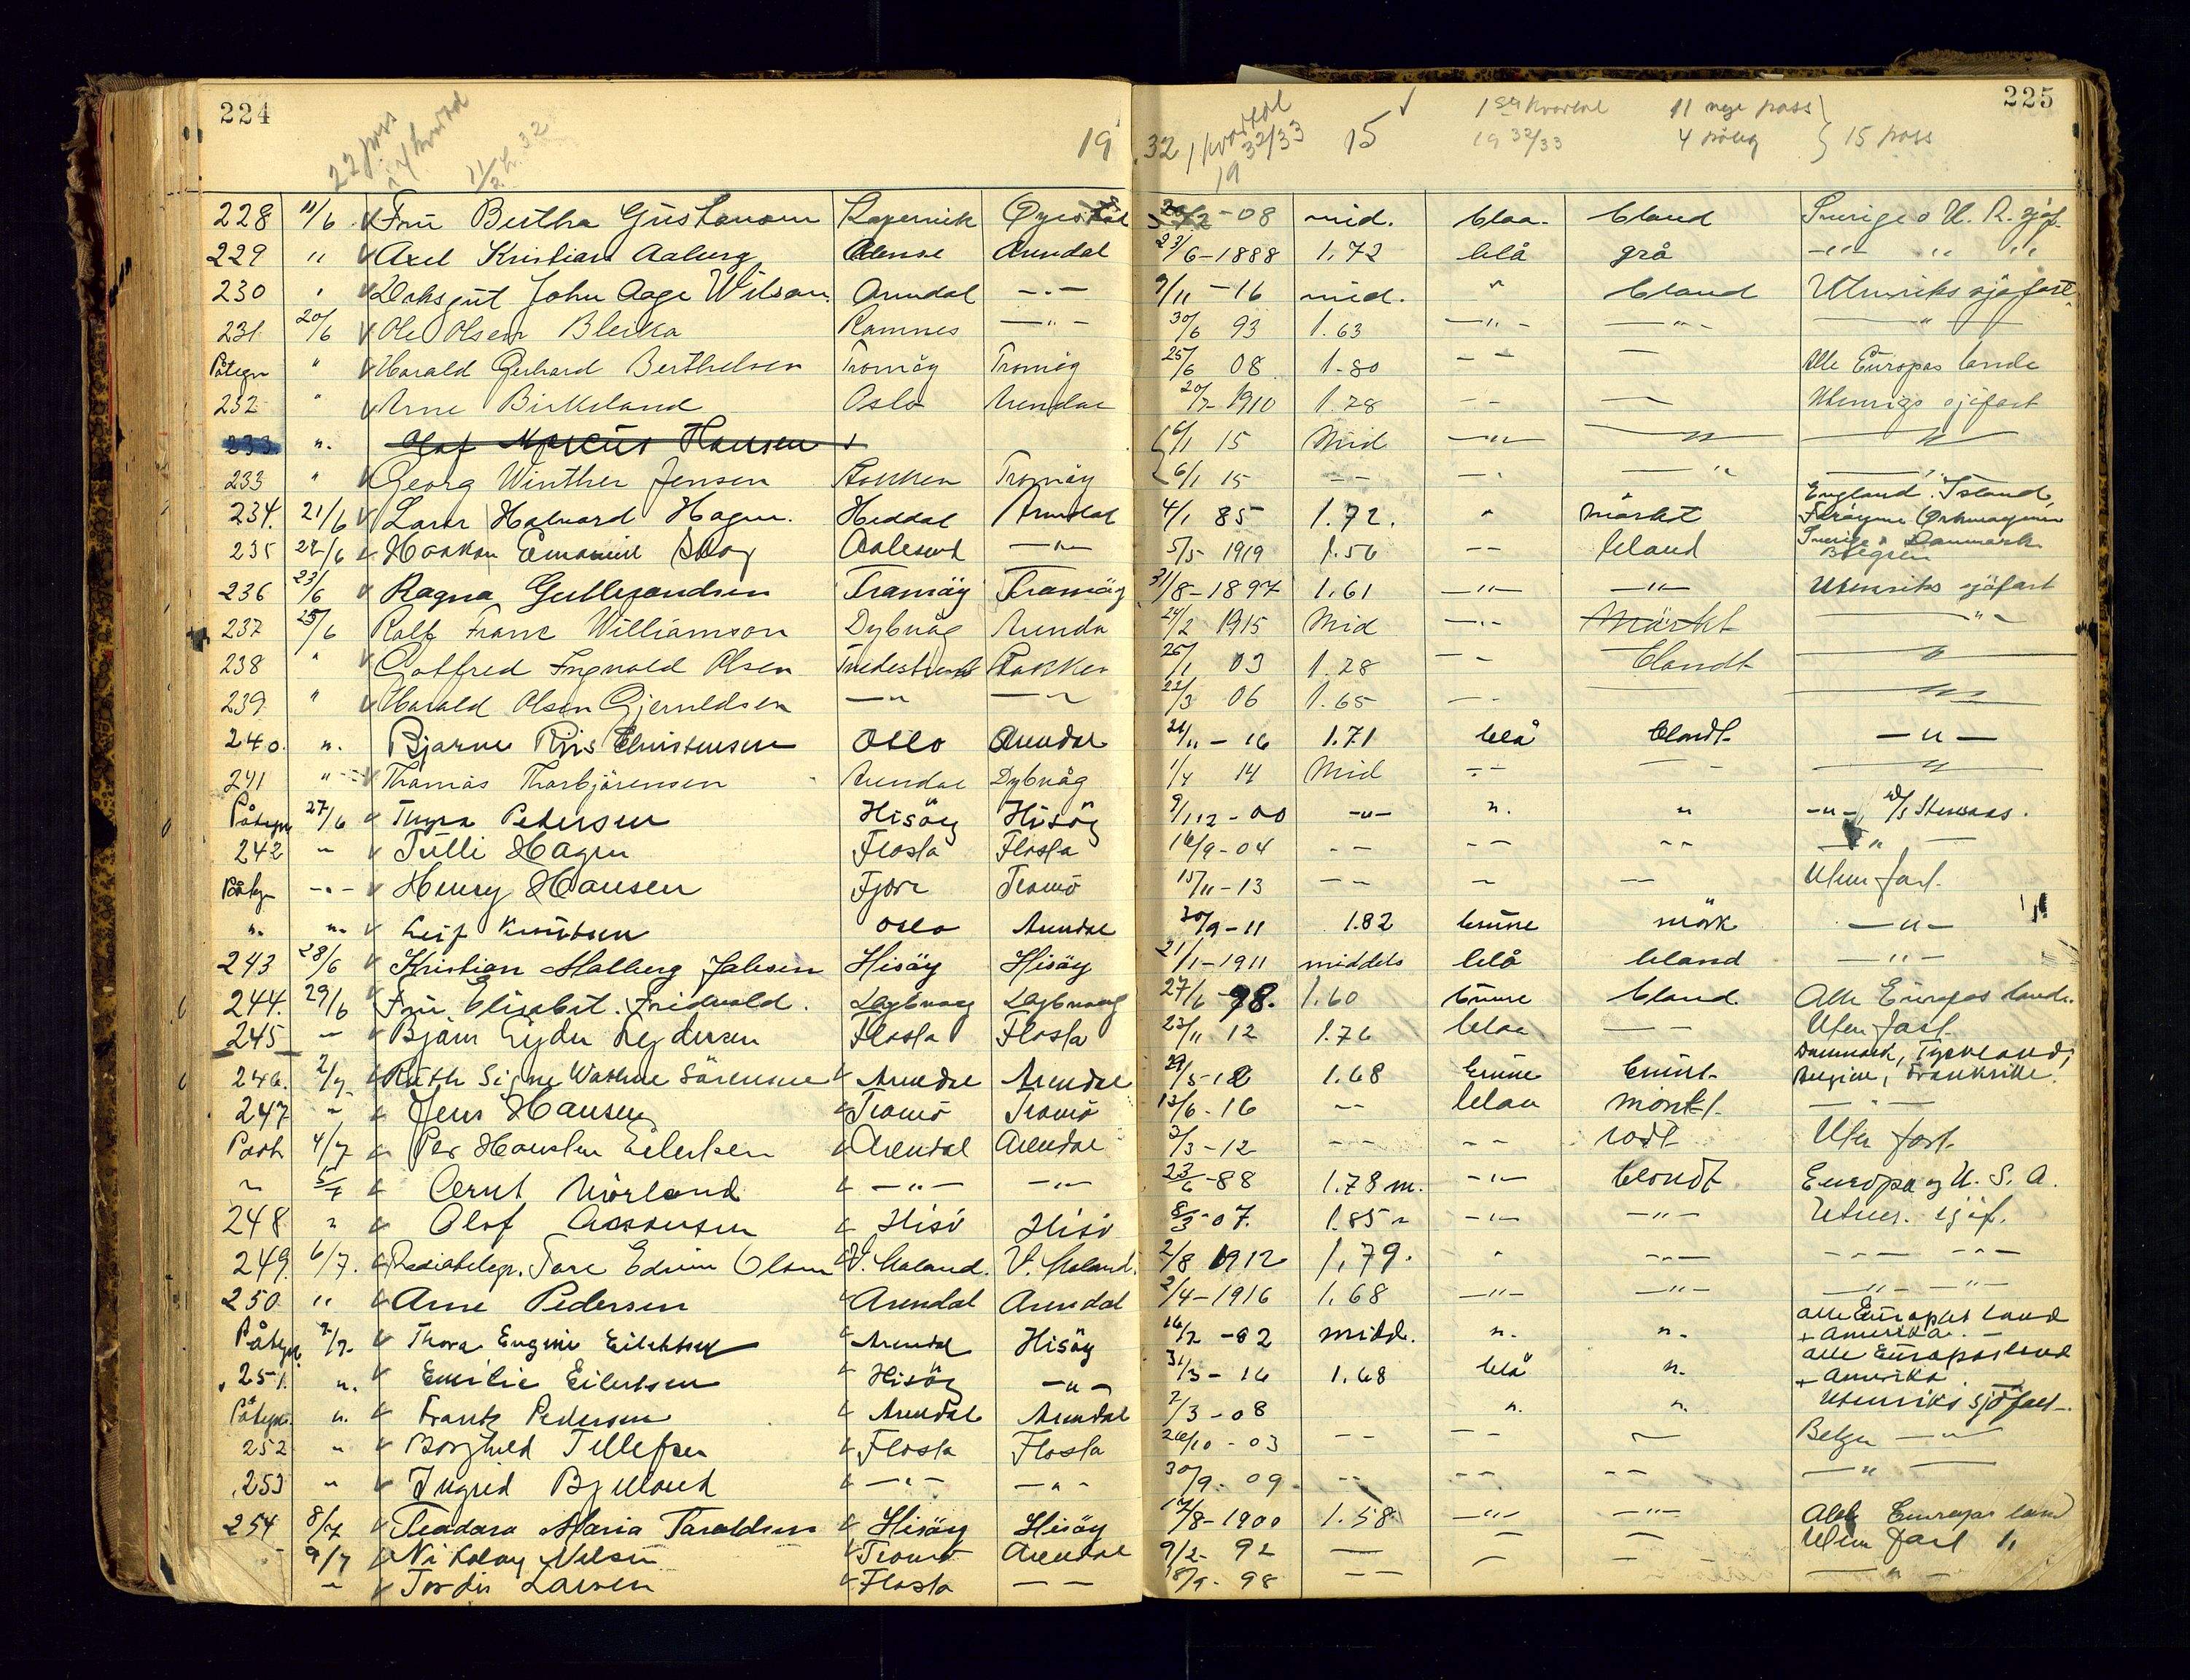 224
22 pass
19
32 1 kvartal 19 32/33
15
1ste kvartal 19 32/33
11 nye pass
4 påteg
15 pass
225
228 11/6 Fru Bertha Gustavson Øyestad -08 mid. blaa. blond Sverige o U. R. sjøf.
229 " Axel Kristian Aaberg Odense Arendal 23/6-1888 1.72 blå grå -"- " "
230 " Dæksgut John Aage Wilson Arendal -"- 9/11-16 mid. " blond Utenriks sjøfart
231 20/6 Ole Olsen Bleika Ramnes -"- 30/6 93 1.63 -"- -"- "
Påtegn " Harald Gerhard Berthelsen Tromøy Tromøy 25/6 08 1.80 - - - Alle Europas lande
232 " Arne Birkeland Oslo Arendal 20/7 1910 1.78 - - - Utenrigs sjøfart
233 ". Olaf Marcus Hansen 6/1 15 Mid -"- -"- -"-
233 " Georg Winther Jensen Stokken Tromøy 6/1 15 - - -"- -"- -"-
234. 21/6 Lars Halvard Hagen. Heddal Arendal 4/1 85 1.72. " mörkt England. Island, Færøyene Orknøyene
235 22/6 Haakon Emanuel Skog Aalesund -"- 5/5-1919 1.56 -- blond Sverige, Danmark Belgien
236 23/6 Ragna Gullovandsen Tromöy Tromöy 31/8-1897 1.61 -"- -"- Utenriks sjöfart
237 25/6 Rolf Franc Williamson Dybvåg Arenda 24/2 1915 Mid -"- Mörkt -"-
238 " Gotfred Ingvald Olsen Tvedestrand Stokken 25/1 03 1.28 - - blondt "
239 " Harald Olsen Gjeruldsen -"- -"- 22/3 06 1.65 - - -"-
240. ". Bjarne Riis Christensen Oslo Arendal 24/11-16 1.71 blå blondt -"-
241 " Thomas Thorbjörensen Arendal Dybvåg 1/4 14 Mid - - - - "
Påtegn 27/6 Thyra Pedersen Hisöy Hisöy 9/12-00 -"- ". " -"-
242 " Tulli Hagen Flosta Flosta 16/9-04 - - - - - - -"-
Påtegn -"- Henry Hansen Fjære Tromö 15/11-13 - - - - Uten fart.
". ". Leif Knutsen Oslo Arendal 30/9-11 1.82 brune mörk -"-
243 28/6 Kristian Malberg Jahsen Hisöy Hisöy 21/1-1911 middels blå blond -"-
244. 29/6 Fru Elisabet Fridvold. Dybvaag Dybvaag 27/6 98. 1.60 brune blond. Alle Europas lande.
245 " Bjarn Eyder Pedersen Flosta Flosta 23/11 12 1.76 blaa - - Uten fart.
246. 2/7 Ruth Signe Wathne Sörensen Arendal Arendal 1.68 brune brunt Danmark, Tyskland, Belgien, Frankrike.
247 " Jens Hansen Tromö Tromö 13/6-16 -- blaa mörkt. -"-
Påteg 4/7 Per Hansten Eilertsen Arendal Arendal 2/3-12 - - - - rödt Uten fart.
" 5/7 Bernt Mörland -"- -"- 23/6-88 1.78 m. -"- blondt Europa og U. S. A.
248 " Olaf Aasonsen Hisö Hisö 8/3-07. 1.85 " -"- -"- Utenr. sjöf.
249. 6/7. Radiotelegr. Tore Edvin Olsen V. Moland. V. Moland. 2/8 1912 1,79. " -"- -"- -"-
250 " Arne Pedersen Arendal Arendal 2/4-1916 1.68 -"- -"- -"- -"-
Påtegn. 7/7. Thora Eugenie Eilertsen Arendal Hisöy 16/2-82 midd. ". ". alle Europas land + Amerika. -
251. ". Emilie Eilertsen Hisöy -"- 31/3-16 1.68 blå ". alle Europas land + Amerika.
Påtegn. ". Frantz Pedersen Arendal Arendal 2/3-08 ". ". Utenriks sjöfart.
252 " Borghild Tellefsen Flosta Flosta 26/10-03 - - - - - Belgia -"-
253 " Ingrid Bjelland -"- -"- 30/9-09 - - - - - - -"-
254 8/7 Teodora Maria Taraldsen Hisöy Hisöy 17/8-1900 1.58 -"- -"- Alle Europas land
9/7 Nikolay Nelsen Tromö Arendal 9/2-92 - - - Uten fart
" Tordis Larsen Flosta - - 18/9-98 - - - - -"-